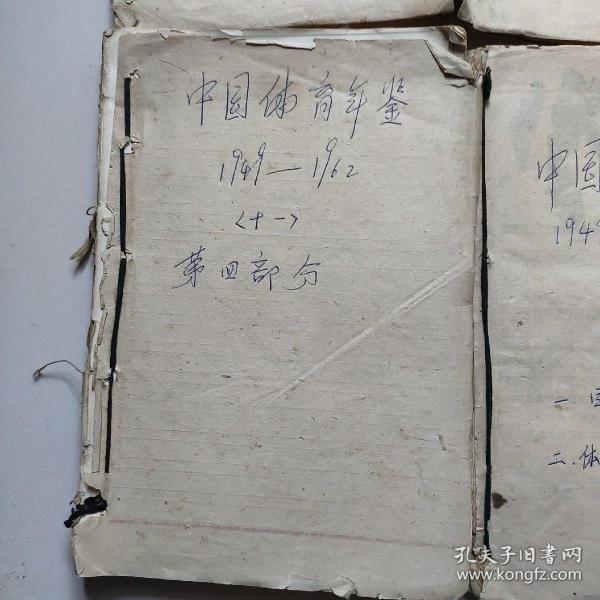 中国体育年鉴
1949—1962
<十一>
第四部分
中国
1949
一.
二.体
孔夫子旧书网
www.kongfz.com